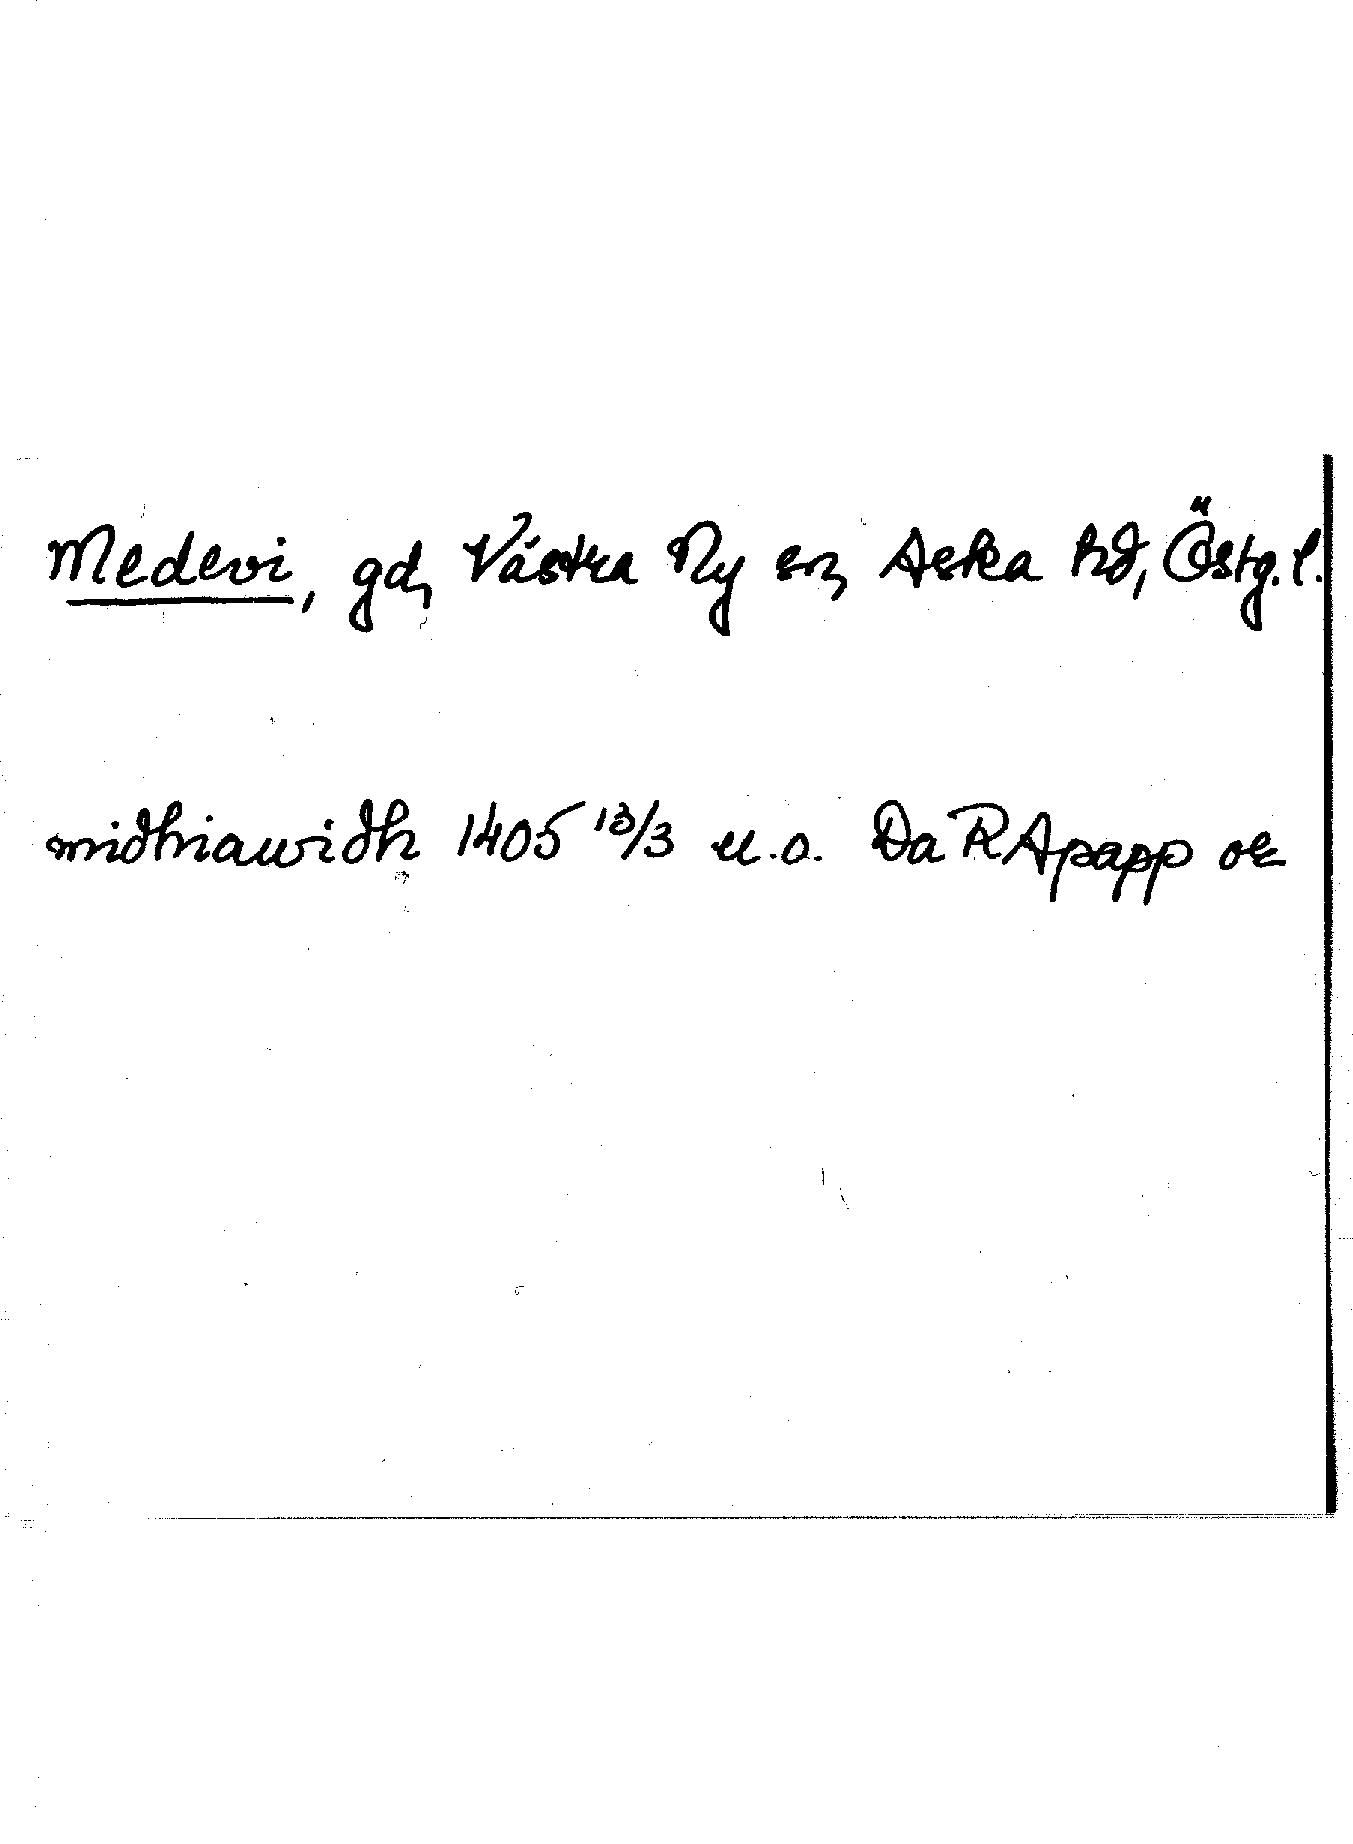 Medevi, gd, Västra Ny sn, Aska hd, Östg. l.
midhiawidh 1405 13/3 u.o. Da RApapp or